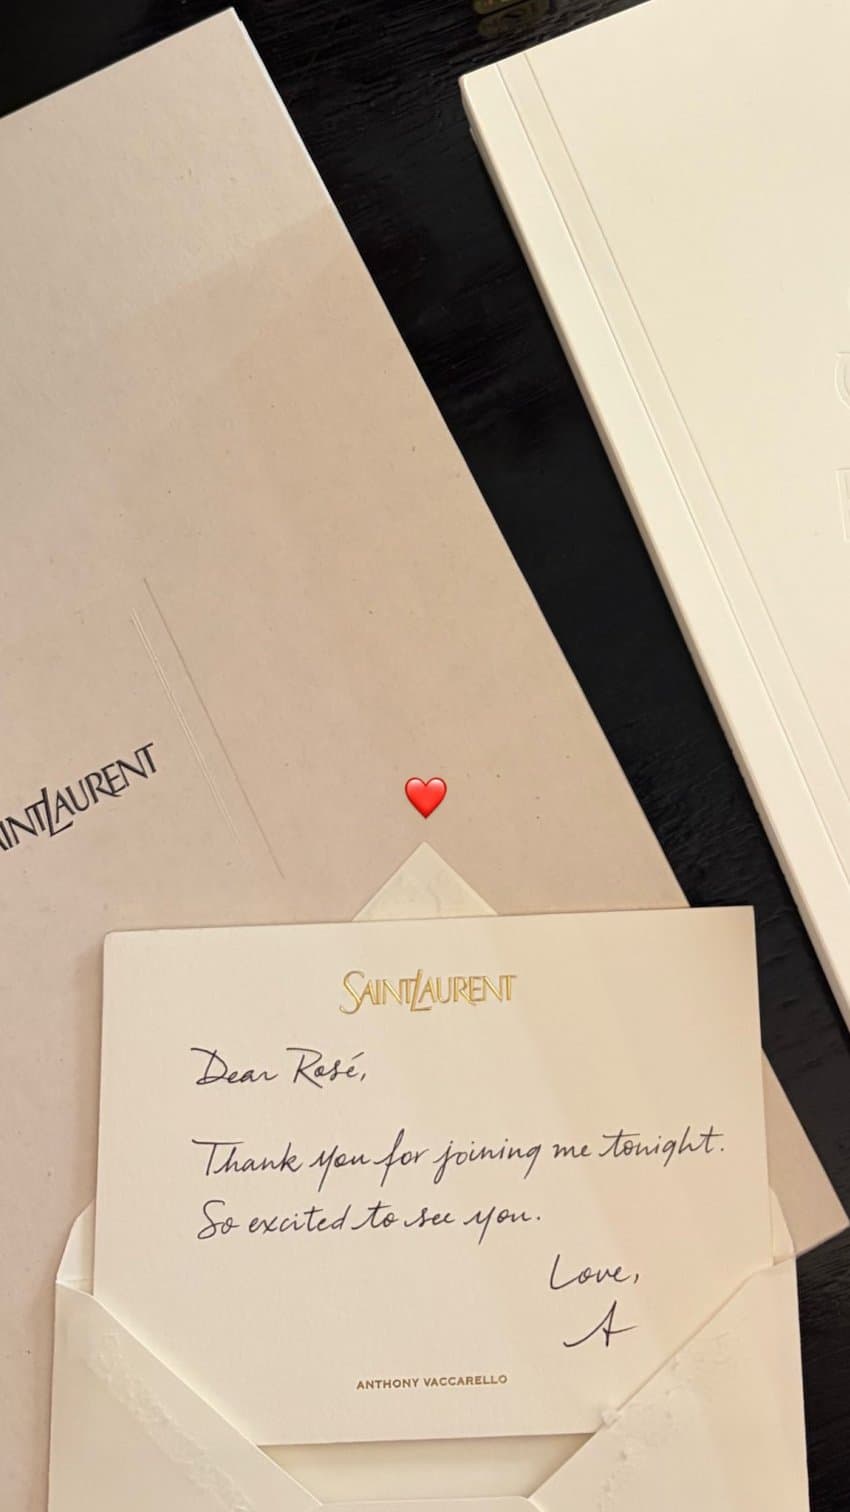 SAINT LAURENT
SAINT LAURENT
Dear Rosé,
Thank you for joining me tonight.
So excited to see you.
Love,
A
ANTHONY VACCARELLO